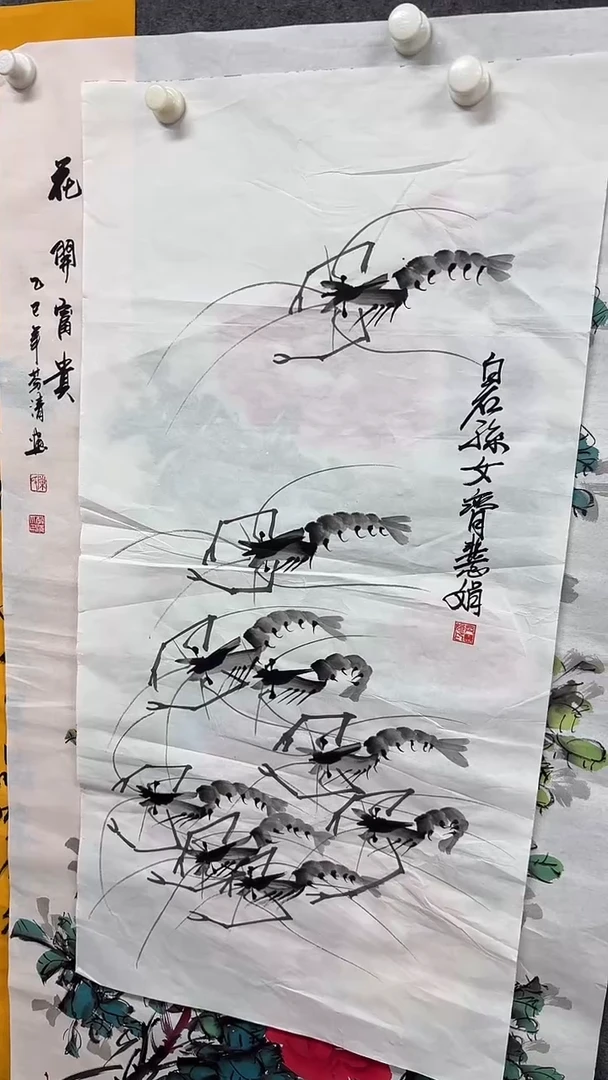 白石孫女齊慧娟
花開富貴
乙巳年芬清畫